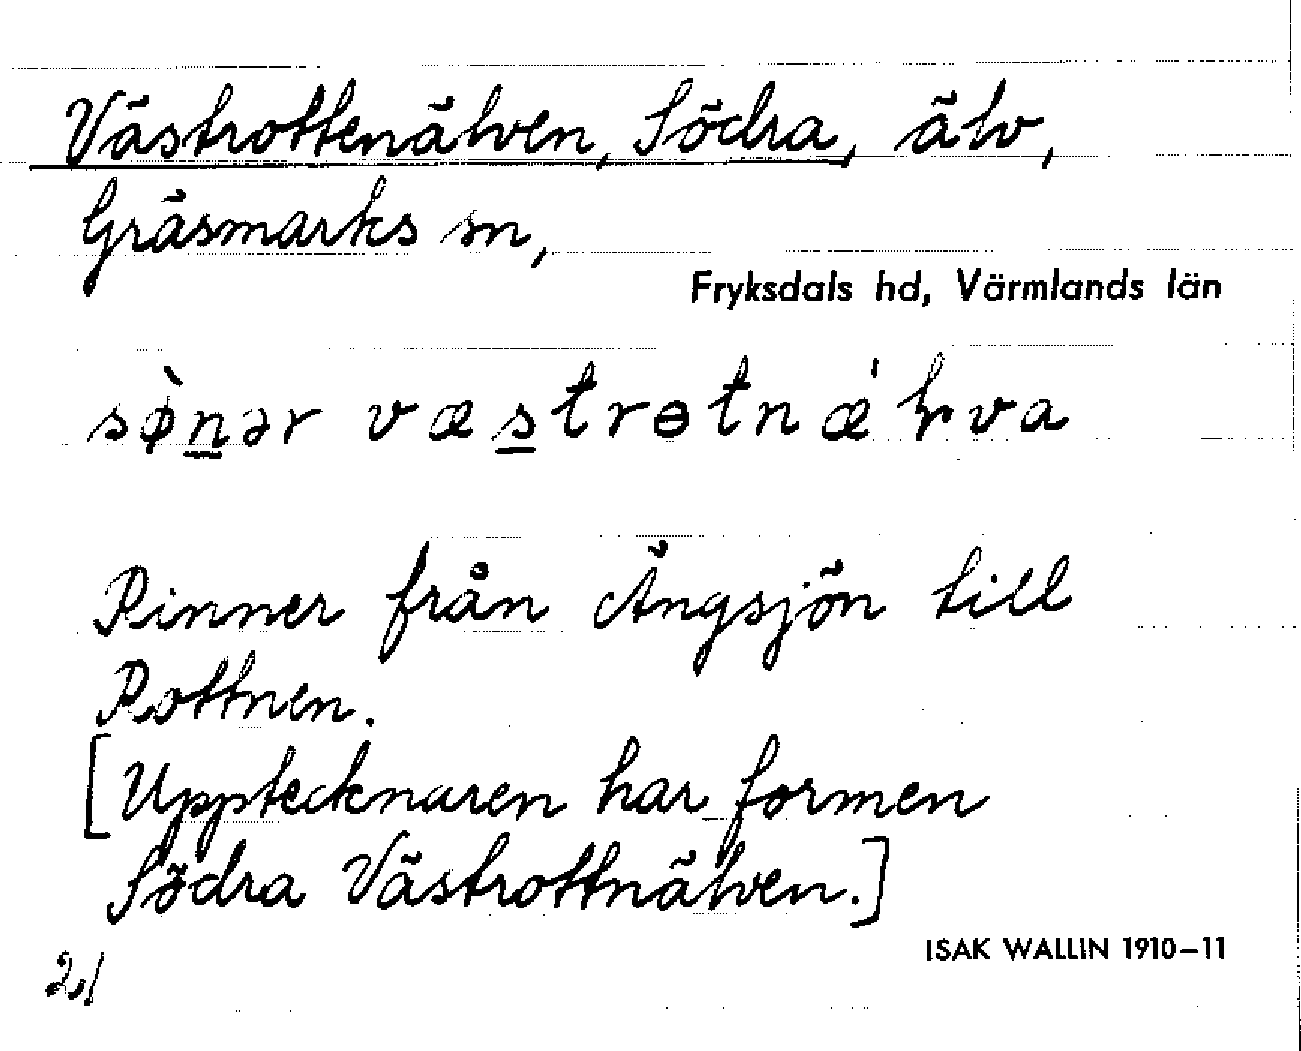 Västrottenälven, Södra, älv,
Gräsmarks sn,
Fryksdals hd, Värmlands län
sø̀n̲ər væs̲trɵtnǽɽva
Rinner från Ängsjön till
Rottnen.
[Upptecknaren har formen
Södra Västrottnälven.]
ISAK WALLIN 1910–11